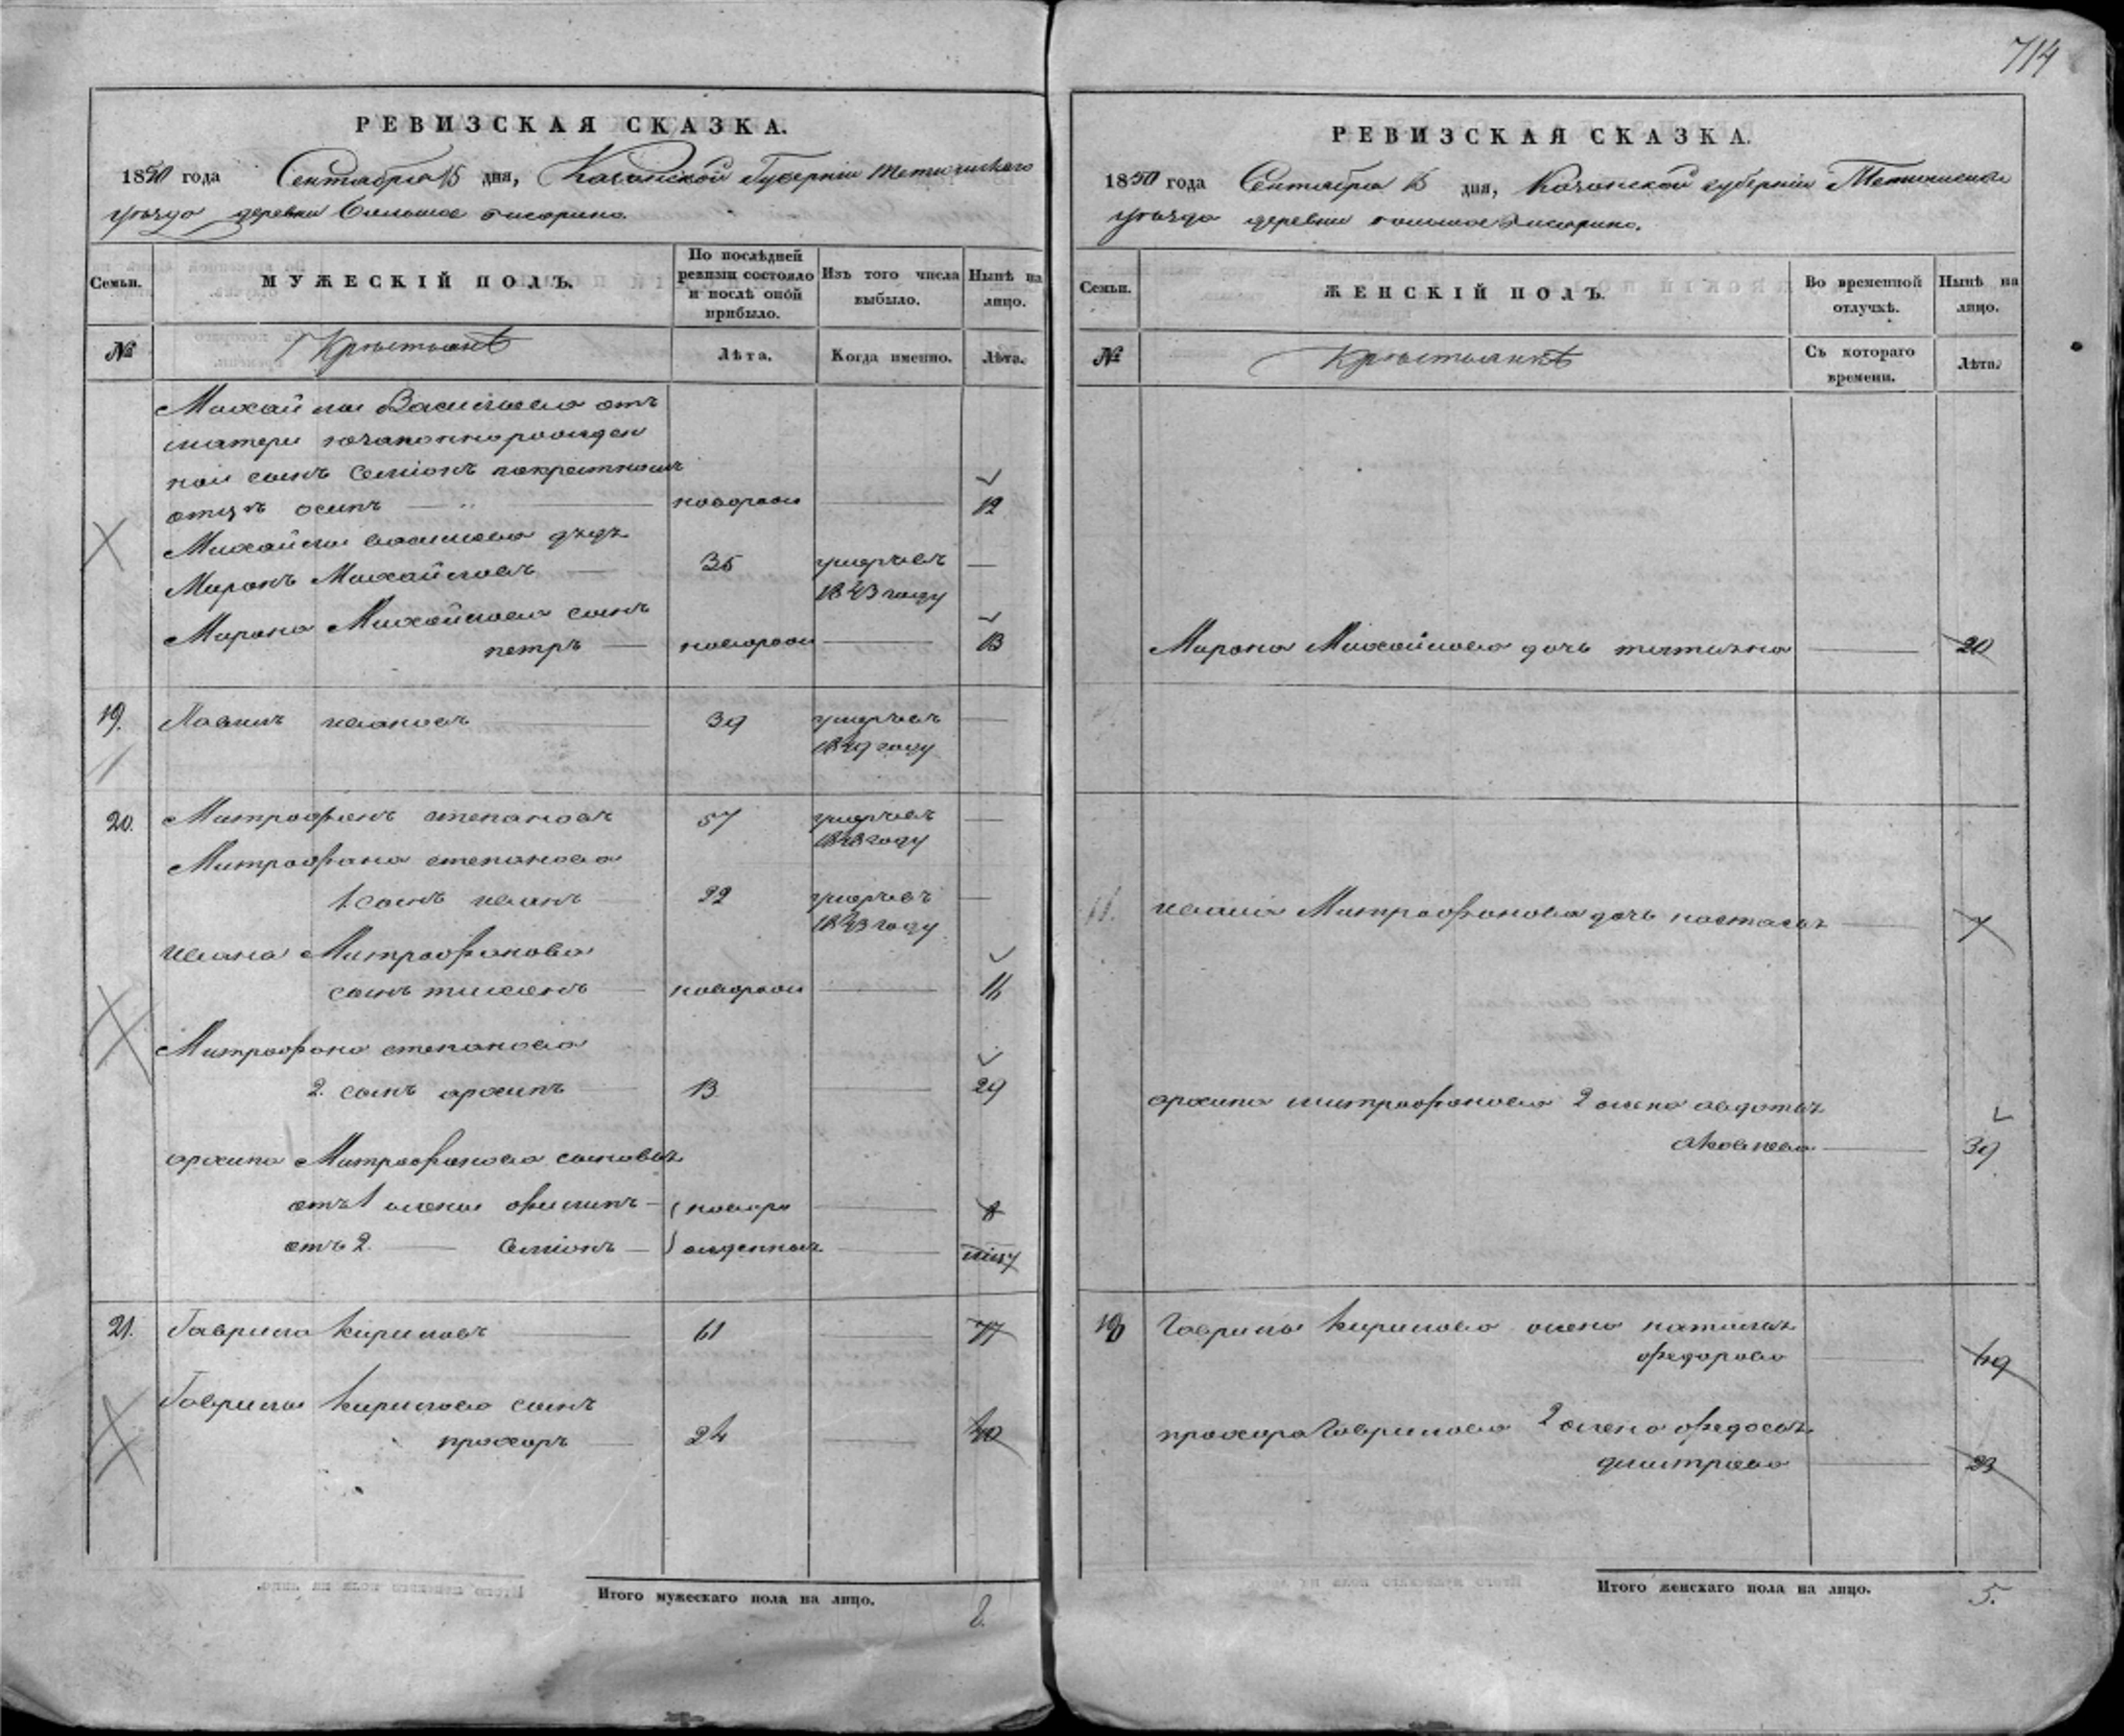 714
РЕВИЗСКАЯ СКАЗКА.
1850 года Сентября 15 дня, Казанской Губернии Тетюшскаго
уезда деревни Большое
Семьи.
МУЖЕСКІЙ ПОЛЪ.
По послѣдней ревизіи состояло и послѣ оной прибыло.
Изъ того числа выбыло.
Нынѣ на лицо.
№
Крестьяне
Лѣта.
Когда именно.
Лѣта.
Михайлы Васильева отъ
матери незаконнорожден
ной сынъ Семіонъ покрестномъ
отцѣ осипъ новорож 12
Михайлы васильева дядя
Миронъ Михайловъ 35 умръ въ
1843 году
Мирона Михайлова сынъ
петръ новорож 13
19. иванова 39 умръ въ
1849 году
20. Митрофанъ степановъ 57 умръ въ
1848 году
Митрофана степанова
1 сынъ иванъ 22 умръ въ
1843 году
ивана Митрофанова
сынъ новорож
Митрофана степанова
2. сынъ архипъ 13 29
архипа Митрофанова сыновья
отъ 1 жены филипъ новоро 8
отъ 2. Семіонъ жденныя
21. Гаврила кириловъ 61 77
Гаврилы кирилова сынъ
прохоръ 24 40
Итого мужескаго пола на лицо. 8
РЕВИЗСКАЯ СКАЗКА.
1850 года Сентября 15 дня, Казанской губернии Тетюшскаго
уезда деревни большое
Семьи.
ЖЕНСКІЙ ПОЛЪ.
Во временной отлучкѣ.
Нынѣ на лицо.
№
Крестьянке
Съ котораго времени.
Лѣта.
Мирона Михайлова дочь татьяна 20
ивана Митрофанова дочь настасья 7
архипа митрофанова 2 жена авдотья
яковлева 39
Гаврилы кирилова жена наталья
федорова 49
прохора Гаврилова 2 жена федосья
дмитрева 23
Итого женскаго пола на лицо. 5.